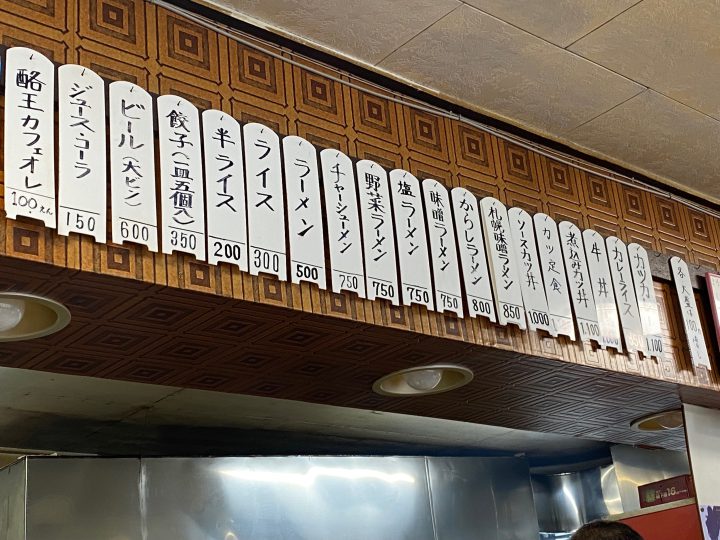 酪王カフェオレ
100えん
ジュース・コーラ
150
ビール(大ビン)
600
餃子(一皿五個入)
350
半ライス
200
ライス
300
ラーメン
500
チャーシューメン
750
野菜ラーメン
750
塩ラーメン
750
味噌ラーメン
750
からしラーメン
800
札幌味噌ラーメン
850
ソースカツ丼
1,000
カツ定食
煮込みカツ丼
1,100
牛丼
カレーライス
カツカレー
1,100
各大盛